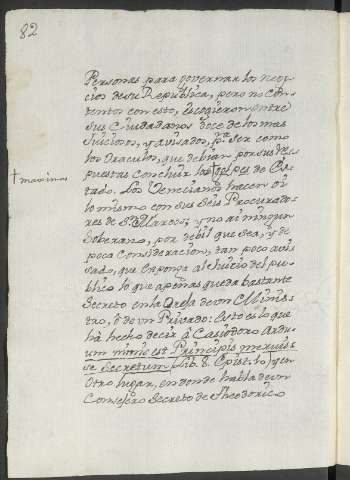 82
Personas para governar los nego-
cios de su Republica, pero no con-
tentos con esto, escogieron entre
sus Ciudadanos doce de los mas
juiciosos, y avisados, pa. ser como
los Oraculos, que debian por sus Res-
puestas concluir los † golpes de Es-
† maximos
tado. Los Venecianos hacen oi
lo mismo con sus seis Procurado-
res de Sn. Marcos, y no ai ningun
Soberano, por debil que sea, y de
poca consideracion, tan poco avi-
sado, que exponga al Juicio del pu-
blico lo que apenas queda bastante
Secreto en la Oreja de un Minis-
tro, ò de un Privado: Esto es lo que
hà hecho decir à Casiodoro Ardu-
um nimis est Principis meruis-
se Secretum (lib. 8. Epist. 10) y en
Otro lugar, en donde habla de un
Consejero Secreto de Theodorico